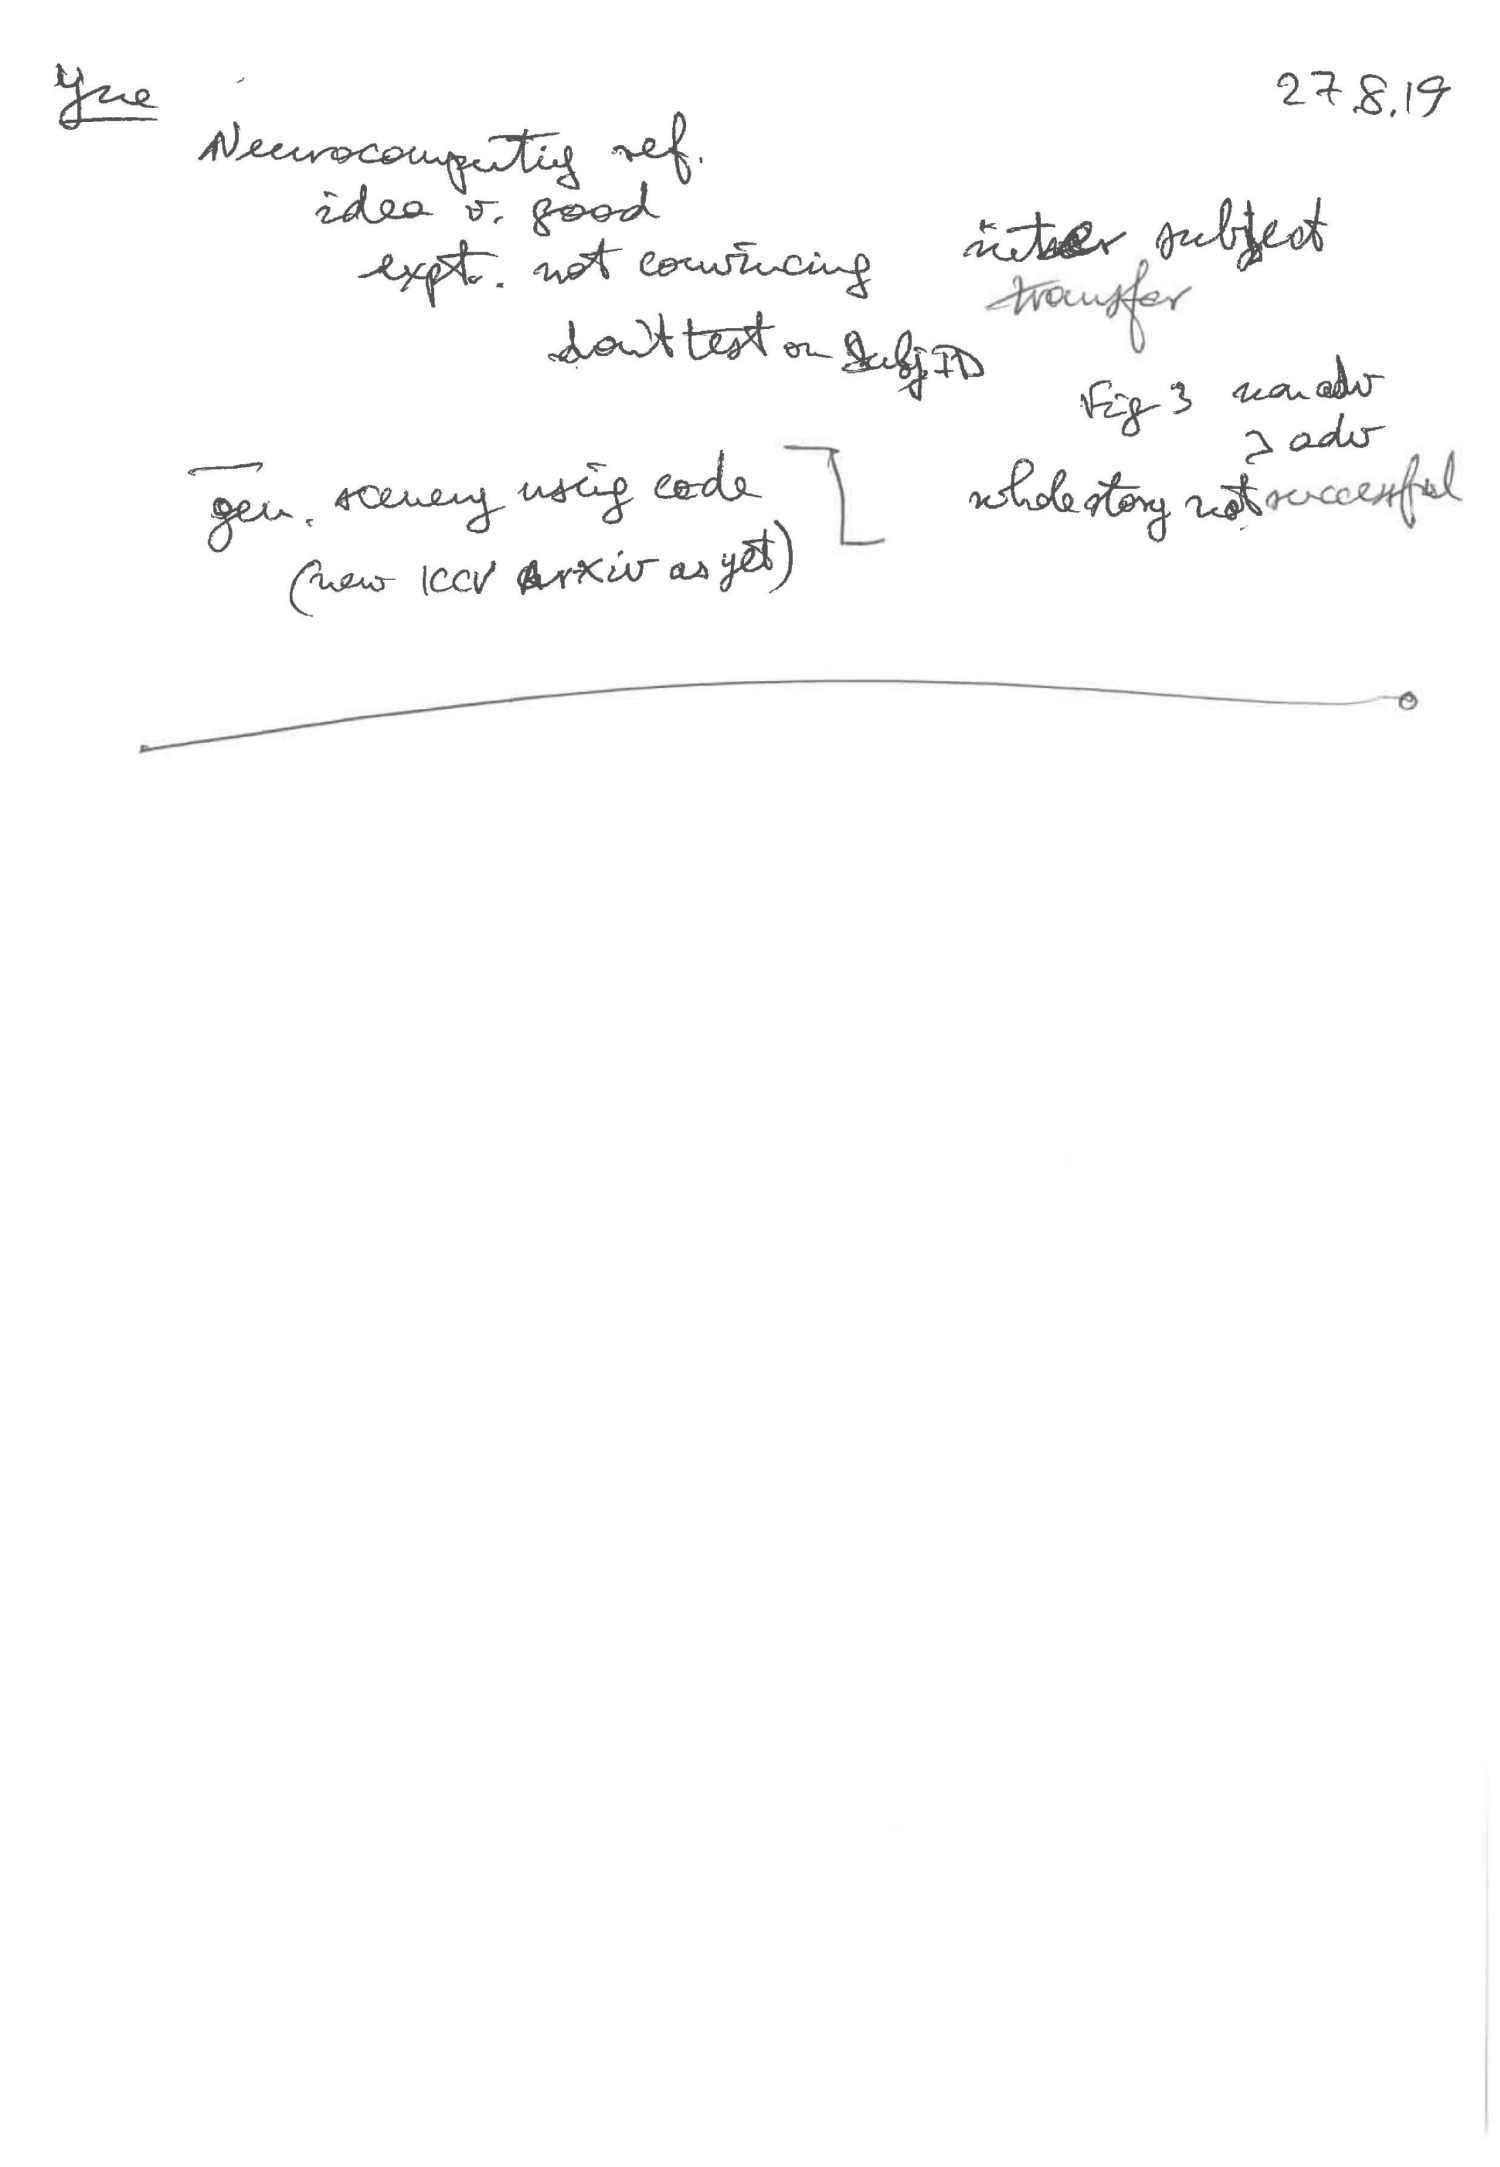 Yue
27.8.19
Neurocomputing ref.
idea v. good
expt. not convincing
inter subject
transfer
don't test on Subj ID
Fig 3 non adv
> adv
whole story not successful
gen. scenery using code
(new ICCV Arxiv as yet)